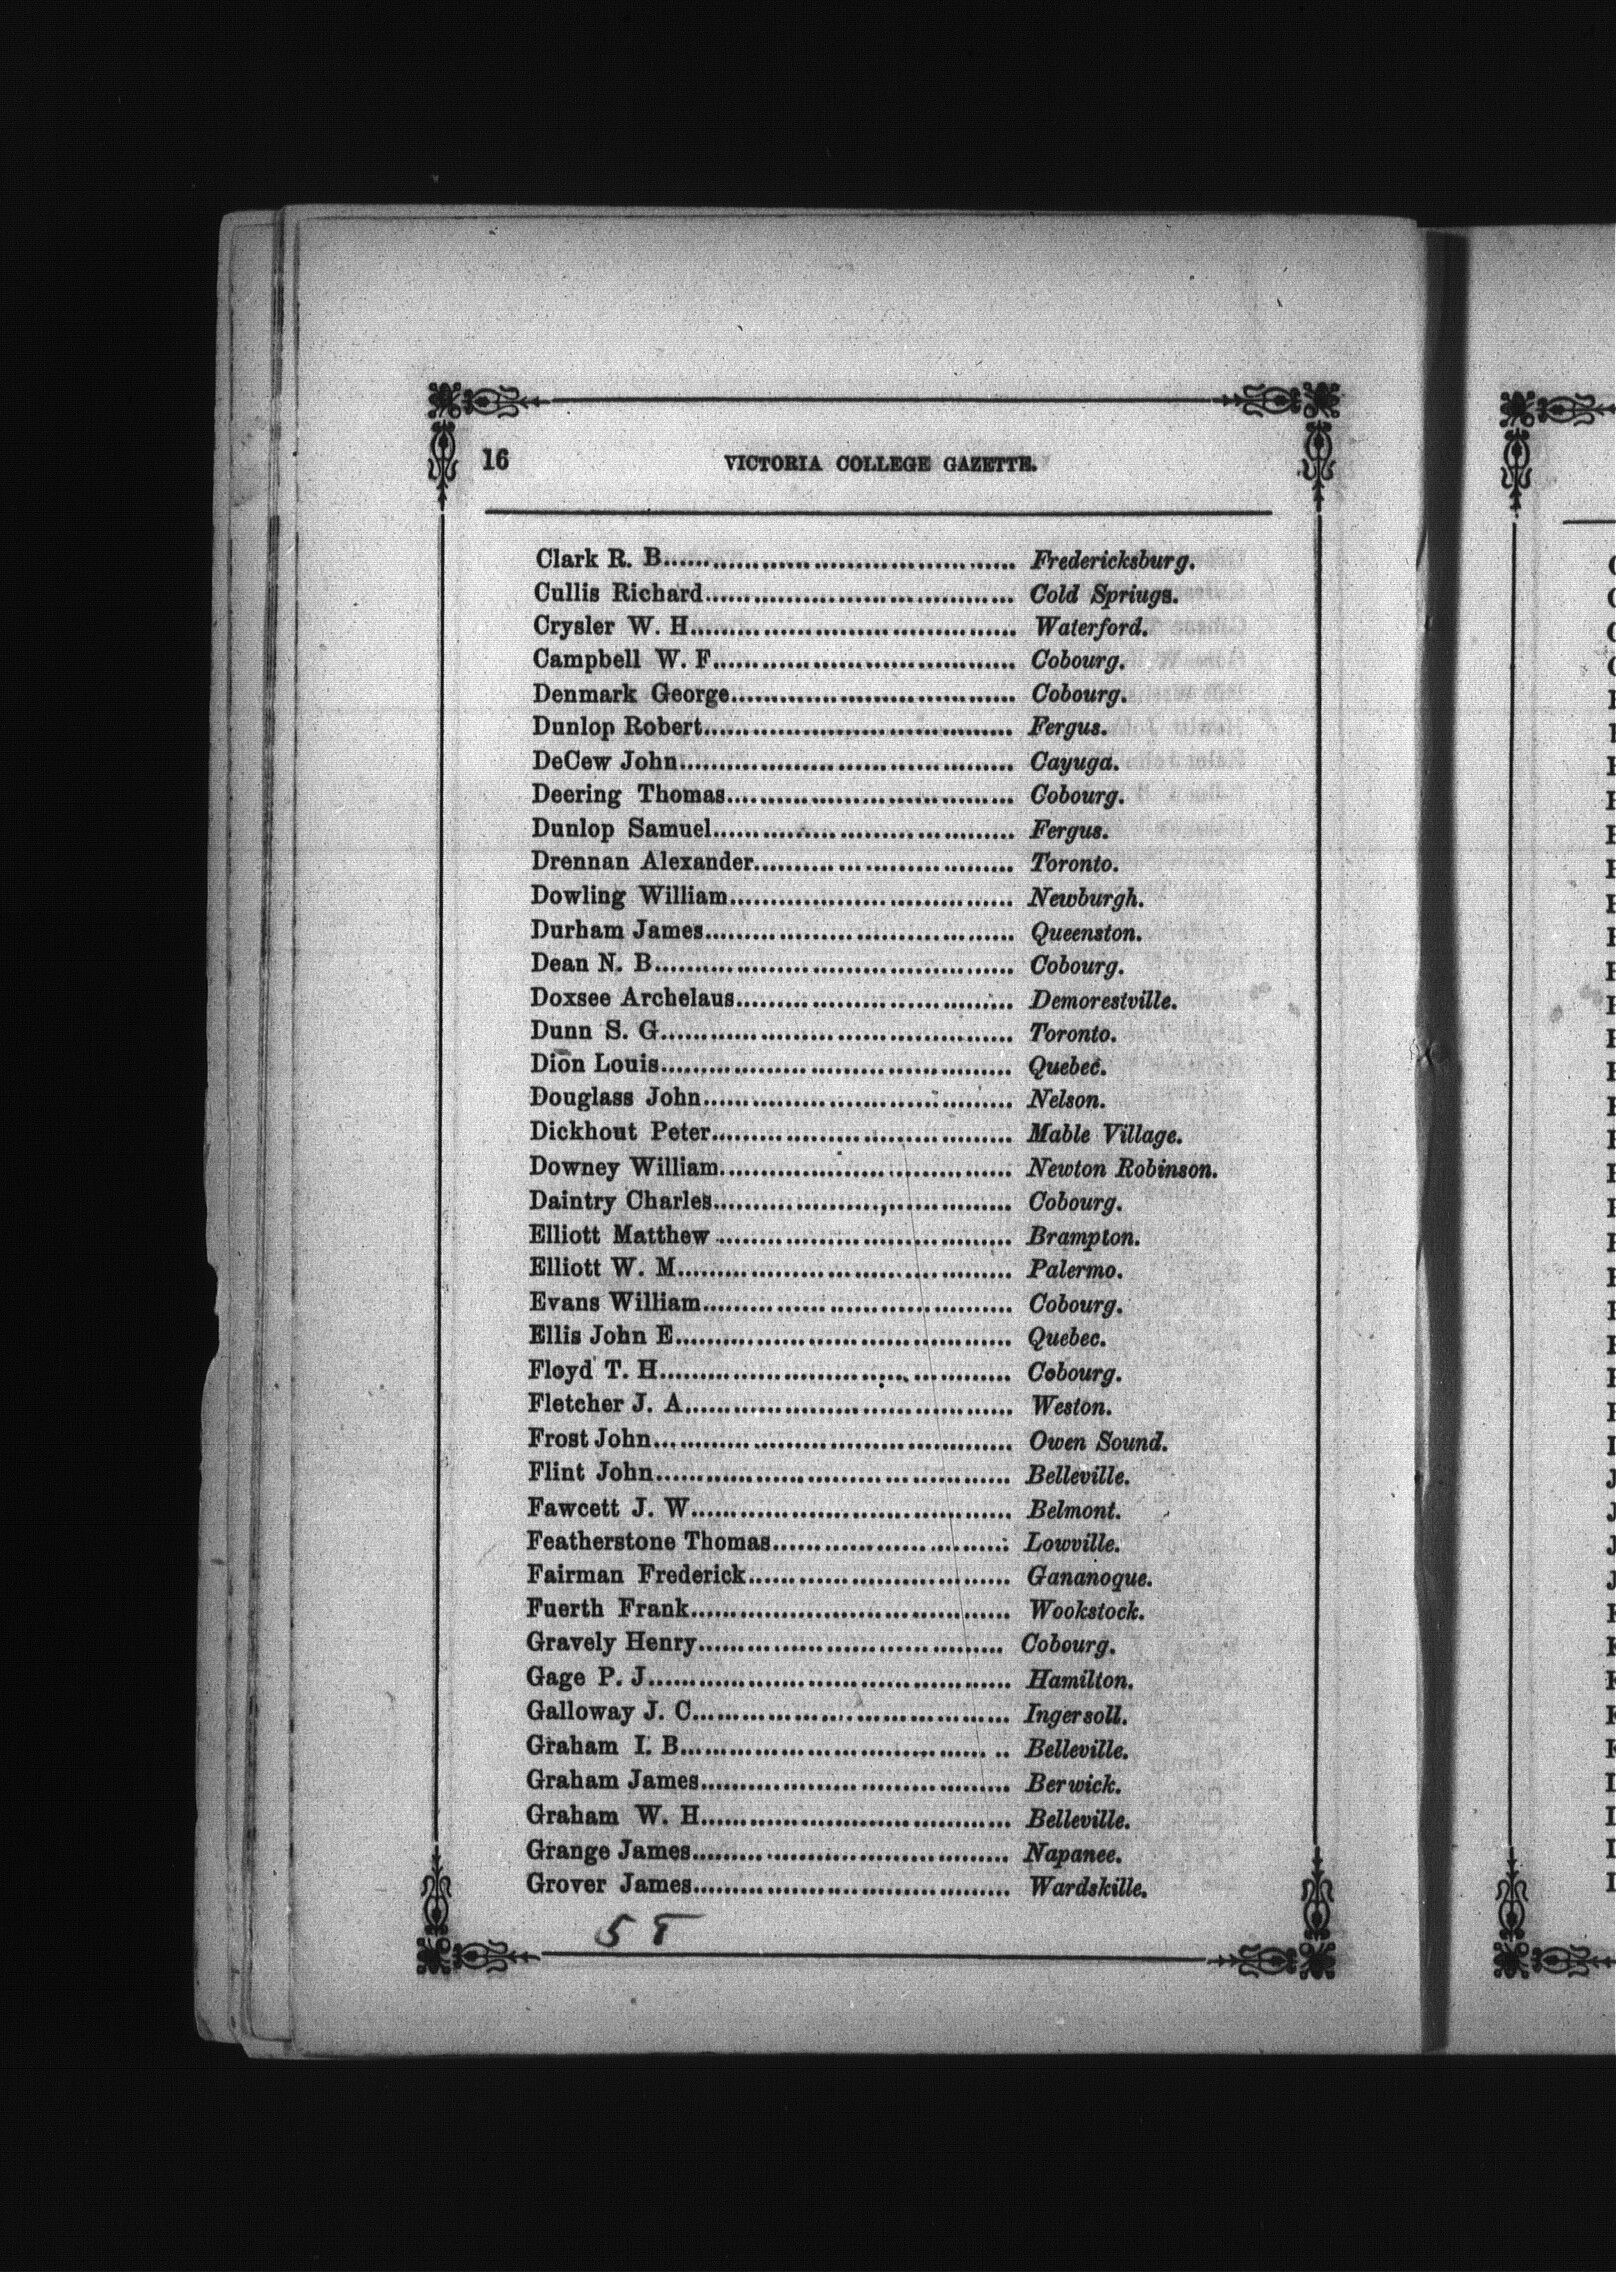 16 VICTORIA COLLEGE GAZETTE.
Clark R. B. Fredericksburg.
Cullis Richard Cold Spriugs.
Crysler W. H. Waterford.
Campbell W. F. Cobourg.
Denmark George Cobourg.
Dunlop Robert Fergus.
DeCew John Cayuga.
Deering Thomas Cobourg.
Dunlop Samuel Fergus.
Drennan Alexander Toronto.
Dowling William Newburgh.
Durham James Queenston.
Dean N. B. Cobourg.
Doxsee Archelaus Demorestville.
Dunn S. G. Toronto.
Dion Louis Quebec.
Douglass John Nelson.
Dickhout Peter Mable Village.
Downey William Newton Robinson.
Daintry Charles Cobourg.
Elliott Matthew Brampton.
Elliott W. M. Palermo.
Evans William Cobourg.
Ellis John E. Quebec.
Floyd T. H. Cobourg.
Fletcher J. A. Weston.
Frost John Owen Sound.
Flint John Belleville.
Fawcett J. W. Belmont.
Featherstone Thomas Lowville.
Fairman Frederick Gananoque.
Fuerth Frank Wookstock.
Gravely Henry Cobourg.
Gage P. J. Hamilton.
Galloway J. C. Ingersoll.
Graham I. B. Belleville.
Graham James Berwick.
Graham W. H. Belleville.
Grange James Napanee.
Grover James Wardskille.
58